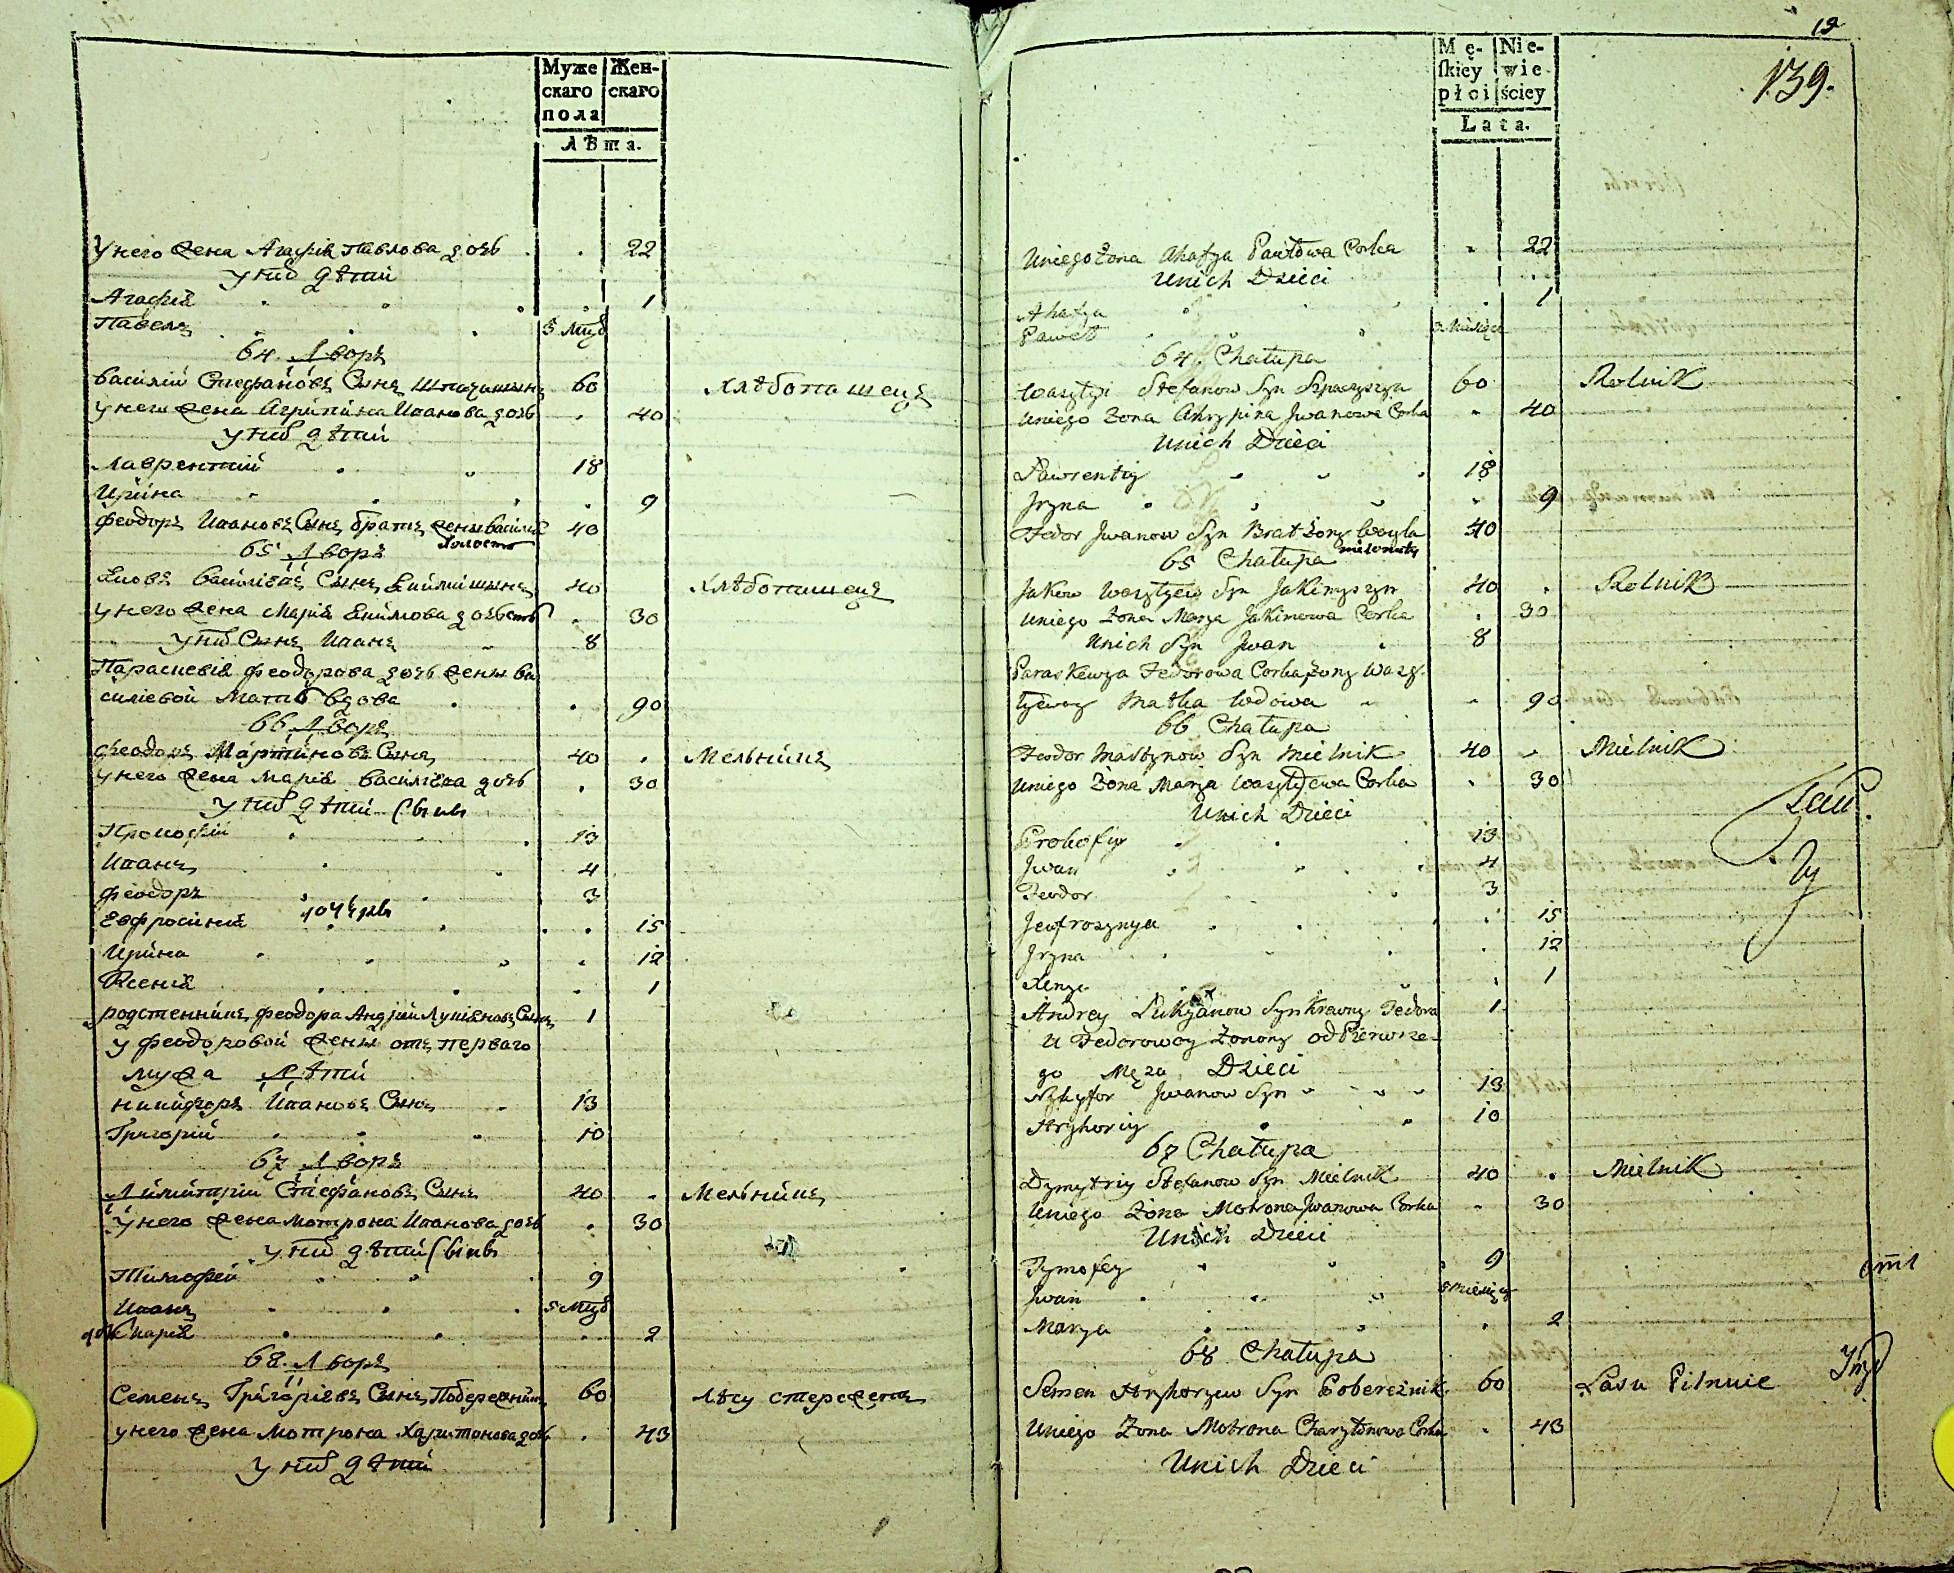 Муже Жен-
скаго скаго
пола
Лѣта.
У него жена Агафія Павлова дочь 22
у нихъ дѣти
Агафія 1
Павелъ 3 мцъ
64. Дворъ
Василій Стефановъ Сынъ 60 хлѣбопашецъ
у него жена Агрипина Иванова дочь 40
у нихъ дѣти
Лаврентій 18
Ирина 9
Феодоръ Ивановъ Сынъ братъ жены 40
холостъ
65 Дворъ
Яковъ Василіевъ Сынъ Якимишинъ 40 хлѣбопашецъ
у него жена Марія Якимова дочь 30
у нихъ Сынъ Иванъ 8
Параскевія Феодорова дочь жены Ва
силіевой Мать вдова 90
66 Дворъ
Феодоръ Мартиновъ Сынъ 40 Мельникъ
у него жена Марія Василіева дочь 30
у нихъ дѣти Сынъ
Прокофій 13
Иванъ 4
Феодоръ 3
дочери
Евфросинія 15
Ирина 12
Ксенія 1
родственникъ Феодора Андрій Лукіяновъ Сынъ 1
у Феодоровой жены отъ перваго
мужа Дѣти
Никифоръ Ивановъ Сынъ 13
Григорій 10
67 Дворъ
Димитрій Стефановъ Сынъ 40 Мельникъ
у него жена Мотрона Иванова дочь 30
у нихъ дѣти
Тимофей 9
Иванъ 5 мцъ
Марія 2
68. Дворъ
Семенъ Григоріевъ Сынъ Побережникъ 60 лѣсу стережетъ
у него жена Мотрона Харитонова дочь 43
у нихъ дѣти
12
139.
Mę- Nie-
skiey wie-
płci ściey
Lata.
Uniego Żona Ahafya Pawłowa Corka 22
Unich Dzieci
Ahafya 1
Paweł 3 Miesięcy
64 Chałupa
Wasyłyi Stefanow Syn Szpaczyszyn 60 Rolnik
Uniego Żona Ahrypina Jwanowa Corka 40
Unich Dzieci
Ławrentiy 18
Jryna 9
Fedor Jwanow Syn Brat Żony Wasyla 40
nieżonaty
65 Chałupa
Jakow Wasylyew Syn Jakimyszyn 40 Rolnik
Uniego Żona Marya Jakimowa Corka 30
Unich Syn Jwan 8
Paraskewya Fedorowa Corka Żony Wasy-
łyiewoy Matka Wdowa 90
66 Chałupa
Feodor Martynow Syn Mielnik 40 Mielnik
Uniego Żona Marya Wasylyewa Corka 30
Unich Dzieci
Prokofiy 13
Jwan 4
Feodor 3
Jewfrosynya 15
Jryna 12
Xenya 1
Andrey Łukyanow Syn Krewny Fedora 1
U Fedorowey Żonony od Pierwsze-
go Męża Dzieci
Nykyfor Jwanow Syn 13
Hryhoriy 10
67 Chałupa
Dymytriy Stefanow Syn Mielnik 40 Mielnik
Uniego Żona Motrona Jwanowa Corka 30
Unich Dzieci
Tymofey 9
Jwan 5 Miesięcy
Marya 2
68 Chałupa
Semen Hryhoryew Syn Pobereżnik 60 Lasu Pilnuie
Uniego Żona Motrona Charytonowa Corka 43
Unich Dzieci